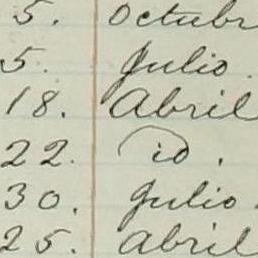 5. Octubr
5. Julio.
18. Abril
22. id.
30. Julio.
25. Abril